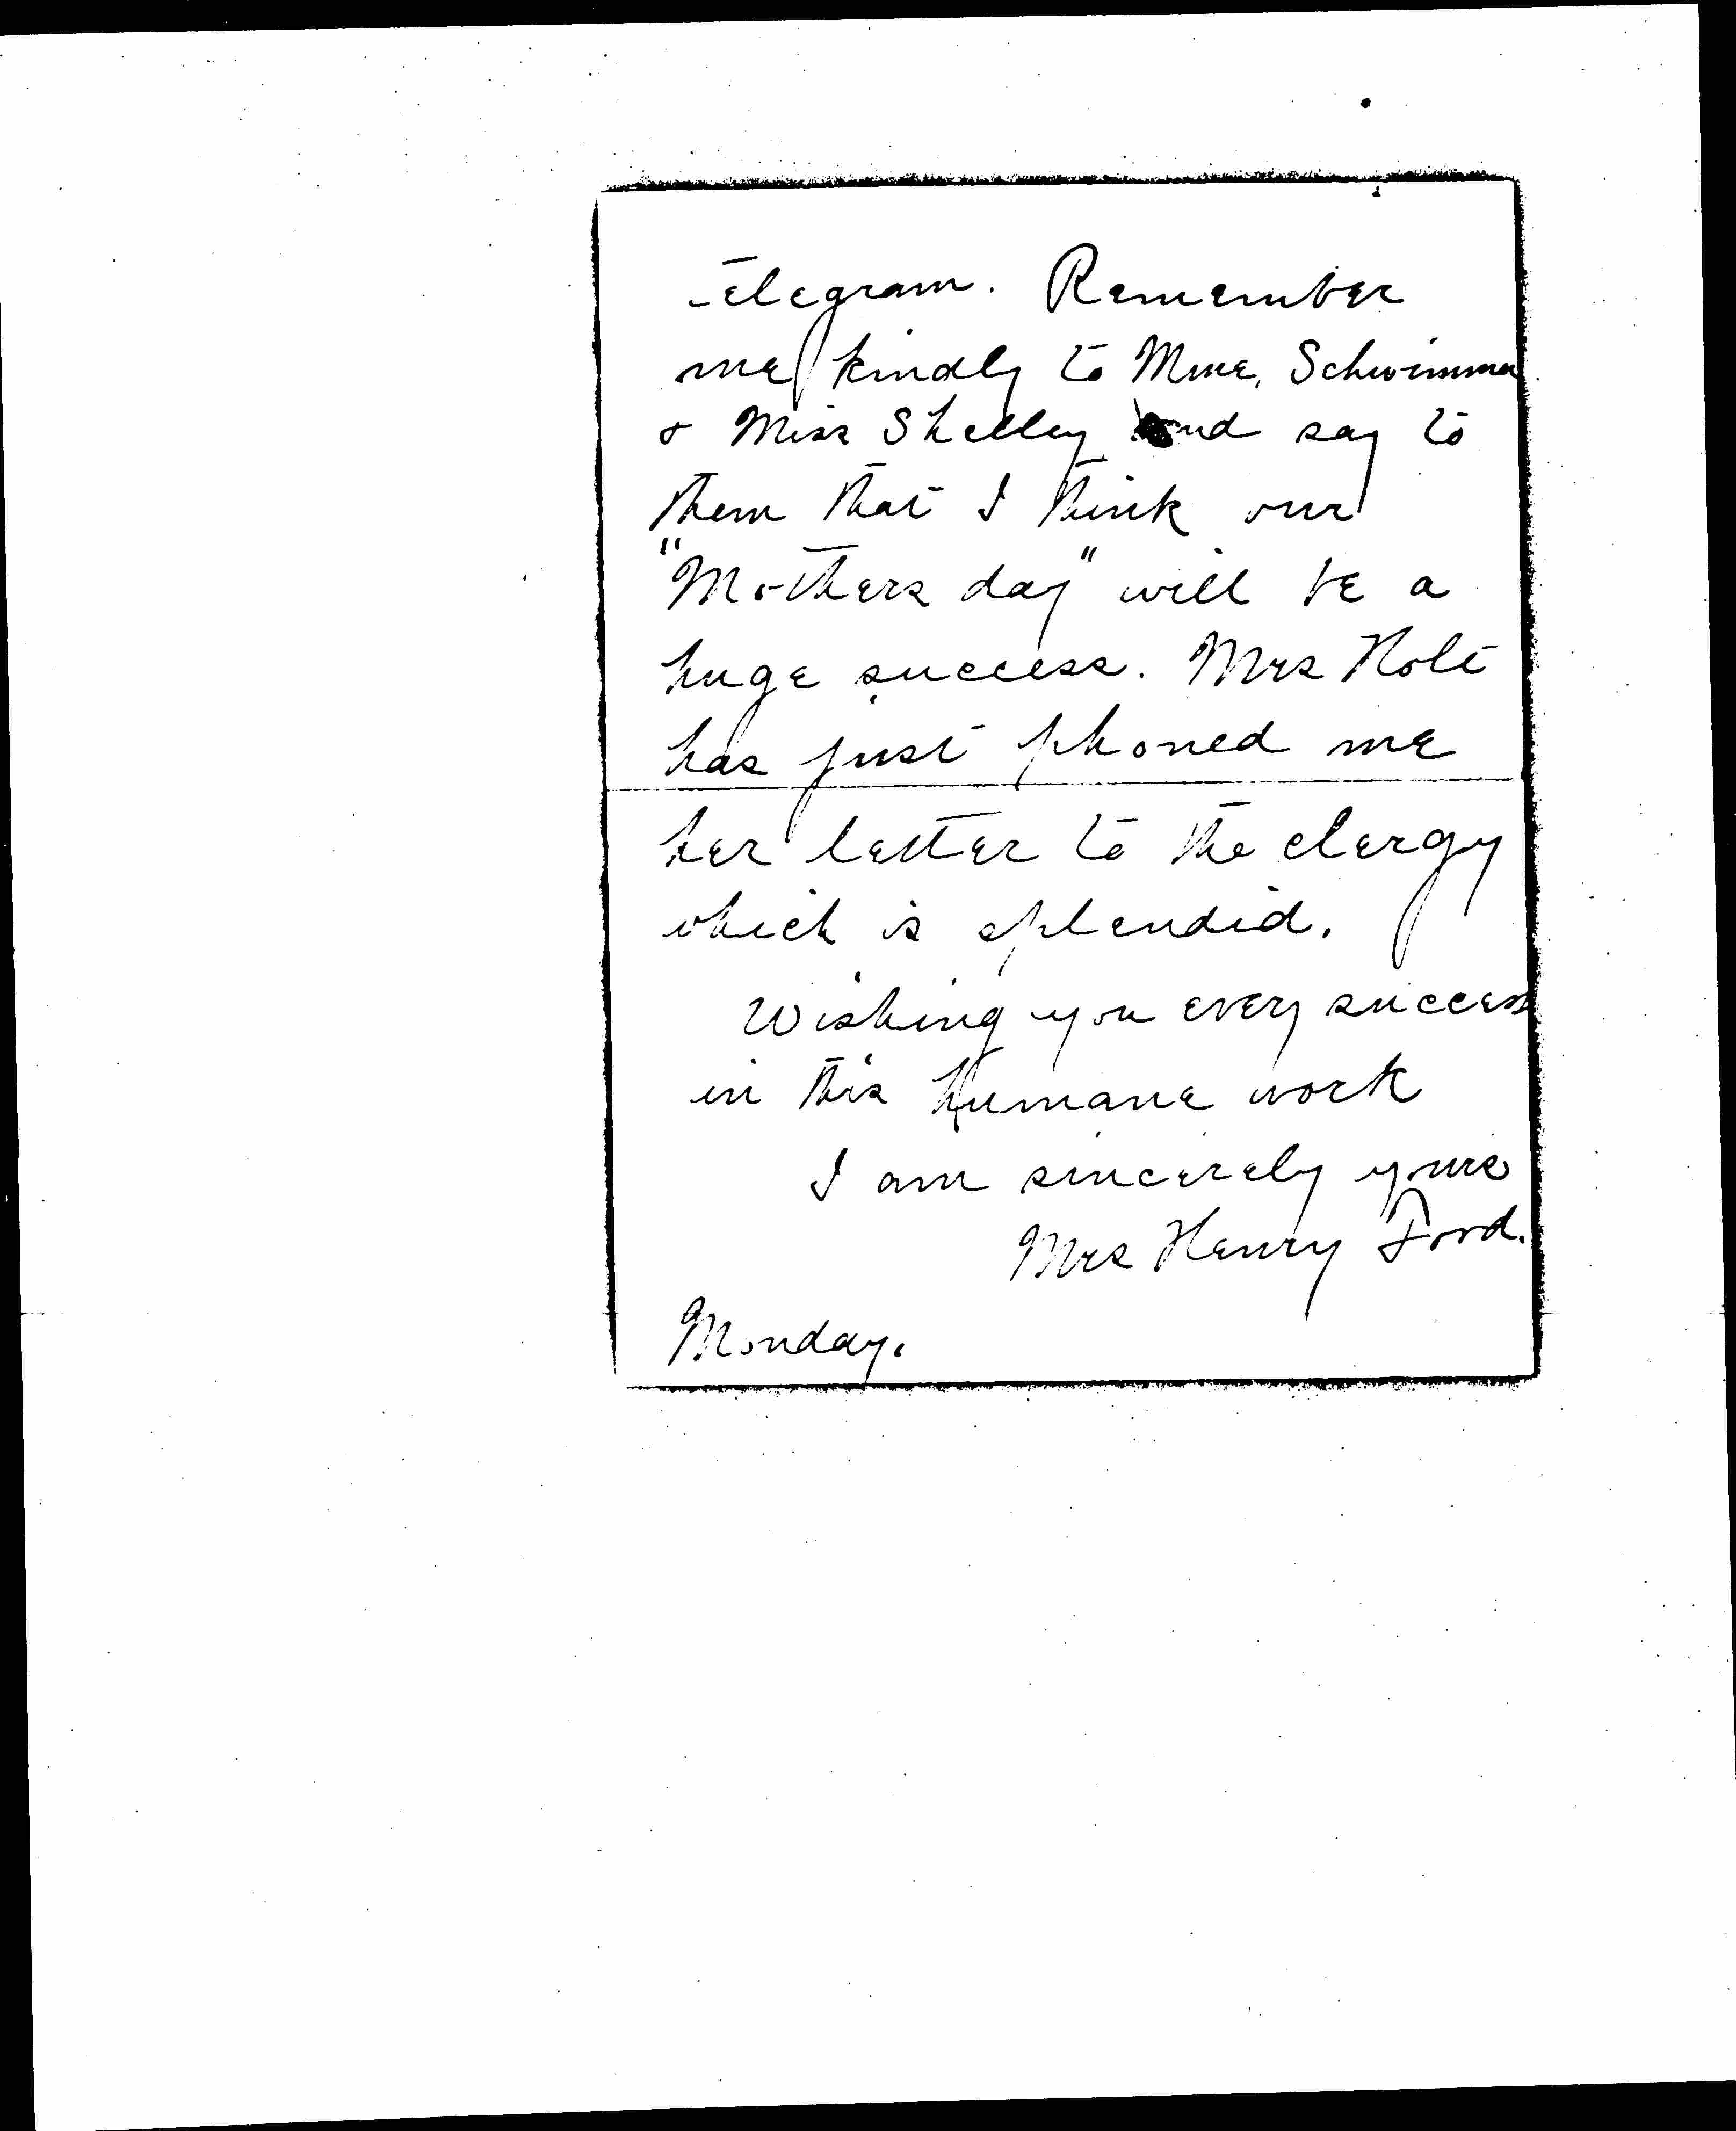 telegram. Remember
me kindly to Mme. Schwimmer
& Miss Shelley and say to
them that I think our
"Mothers day" will be a
huge success. Mrs Holt
has just phoned me
her letter to the clergy
which is splendid.
Wishing you every success
in this humane work
I am sincerely yours
Mrs Henry Ford.
Monday.